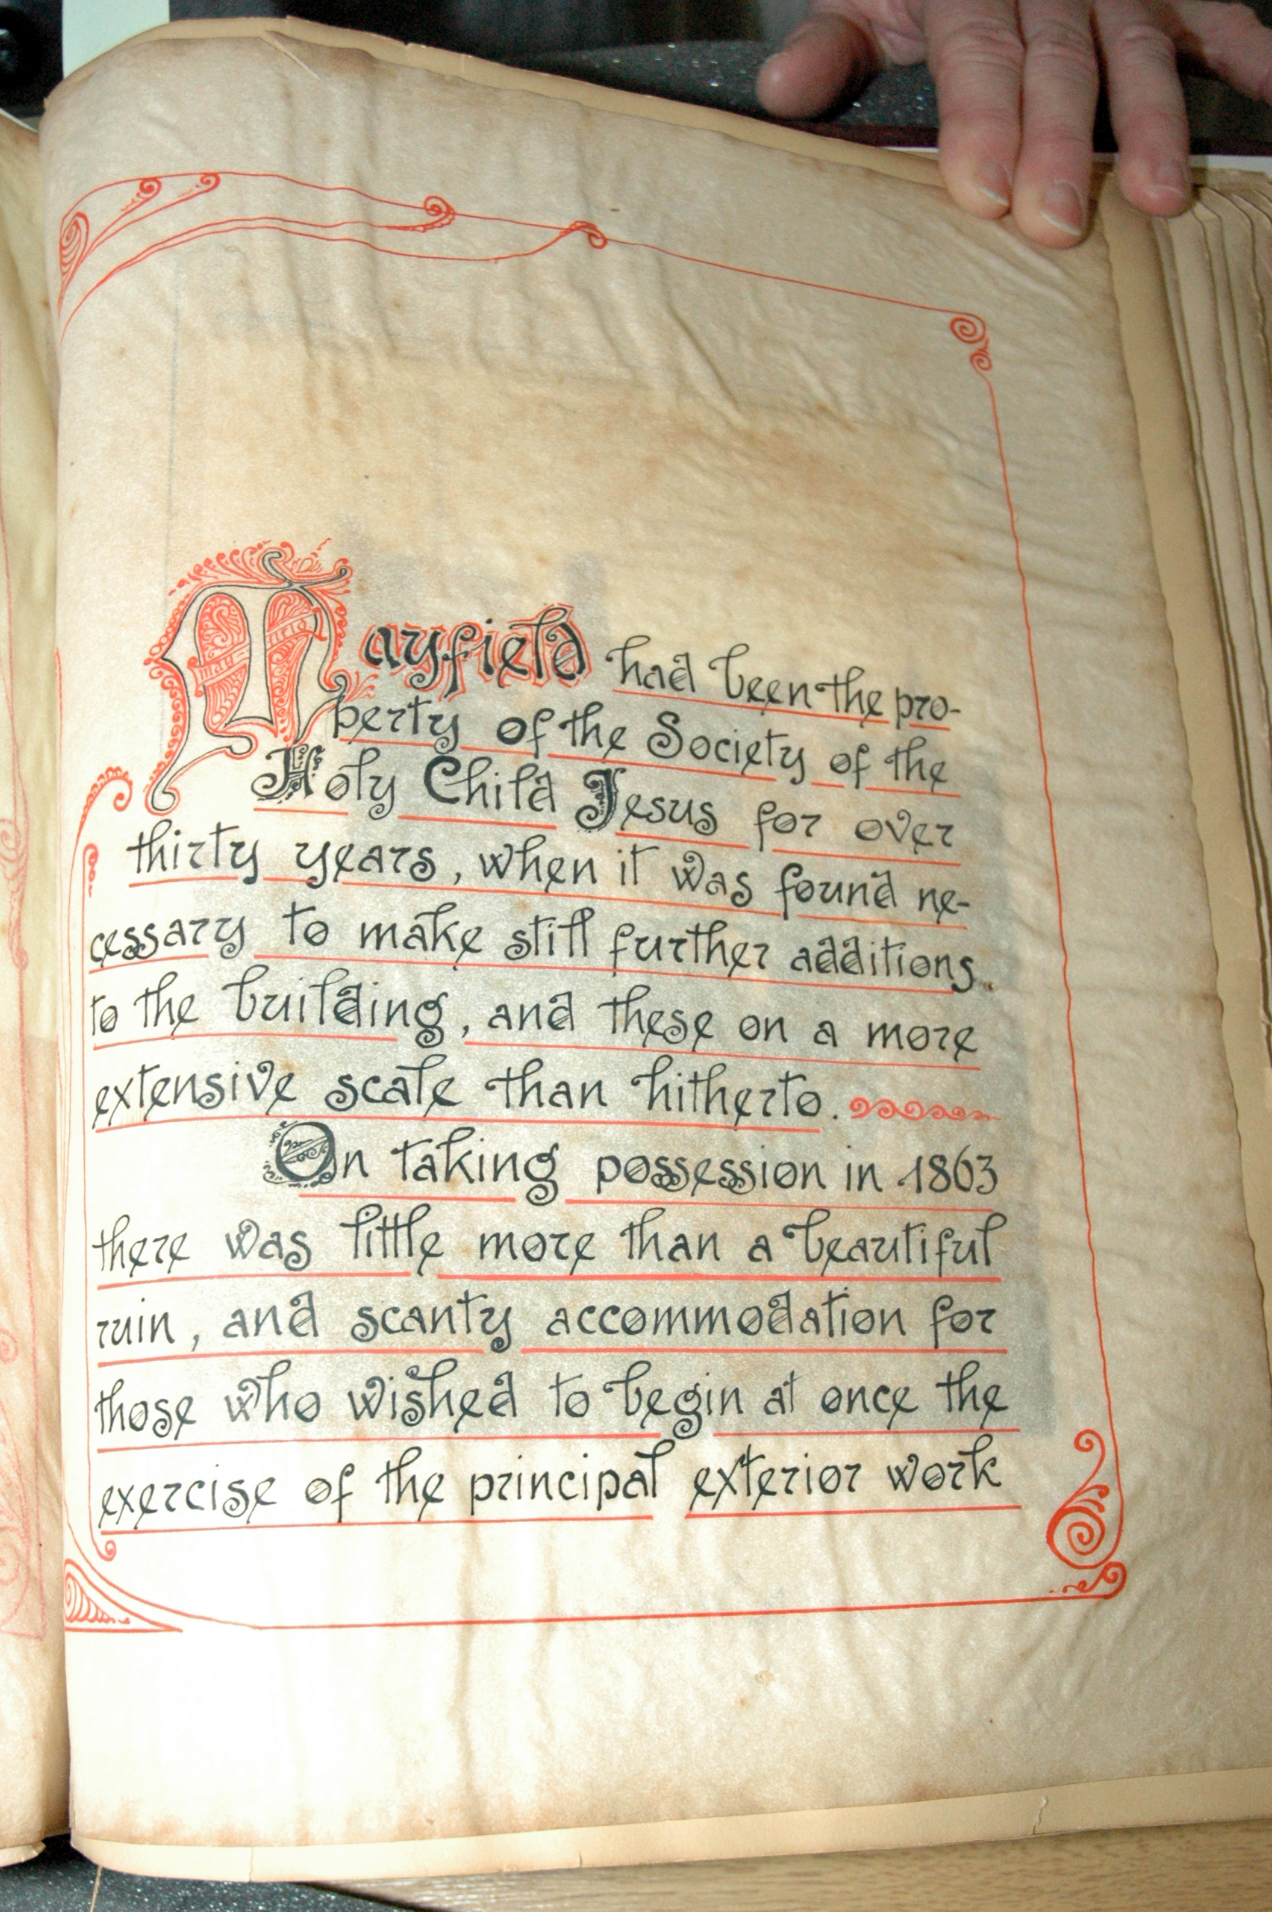 Mayfield had been the pro-
perty of the Society of the
Holy Child Jesus for over
thirty years, when it was found ne-
cessary to make still further additions
to the building, and these on a more
extensive scale than hitherto.
On taking possession in 1863
there was little more than a beautiful
ruin, and scanty accommodation for
those who wished to begin at once the
exercise of the principal exterior work